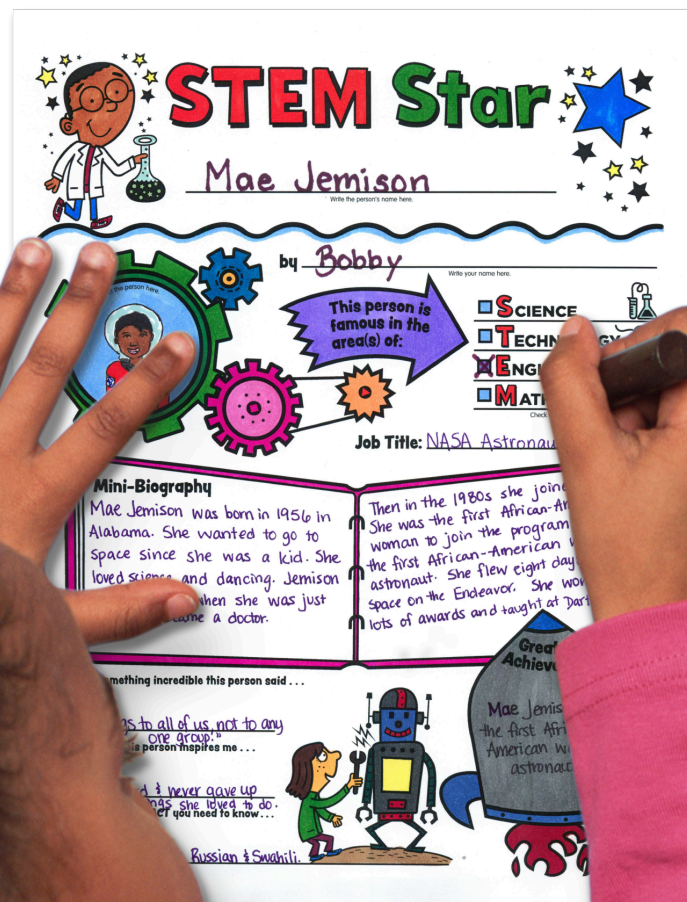 STEM Star
Mae Jemison
Write the person's name here.
by Bobby
Write your name here.
the person here.
This person is
famous in the
area(s) of:
SCIENCE
TECHN GY
ENGI
MAT
Check
Job Title: NASA Astronau
Mini-Biography
Mae Jemison was born in 1956 in
Alabama. She wanted to go to
space since she was a kid. She
loved science and dancing. Jemison
when she was just
came a doctor.
Then in the 1980s she joine
She was the first African-Am
woman to join the program
the first African-American w
astronaut. She flew eight day
space on the Endeavor. She wo
lots of awards and taught at Dart
mething incredible this person said . . .
gs to all of us, not to any
one group!"
is person inspires me . . .
d & never gave up
ngs she loved to do.
CT you need to know . . .
Russian & Swahili.
Great
Achieve
Mae Jemis
the first Afri
American w
astronau